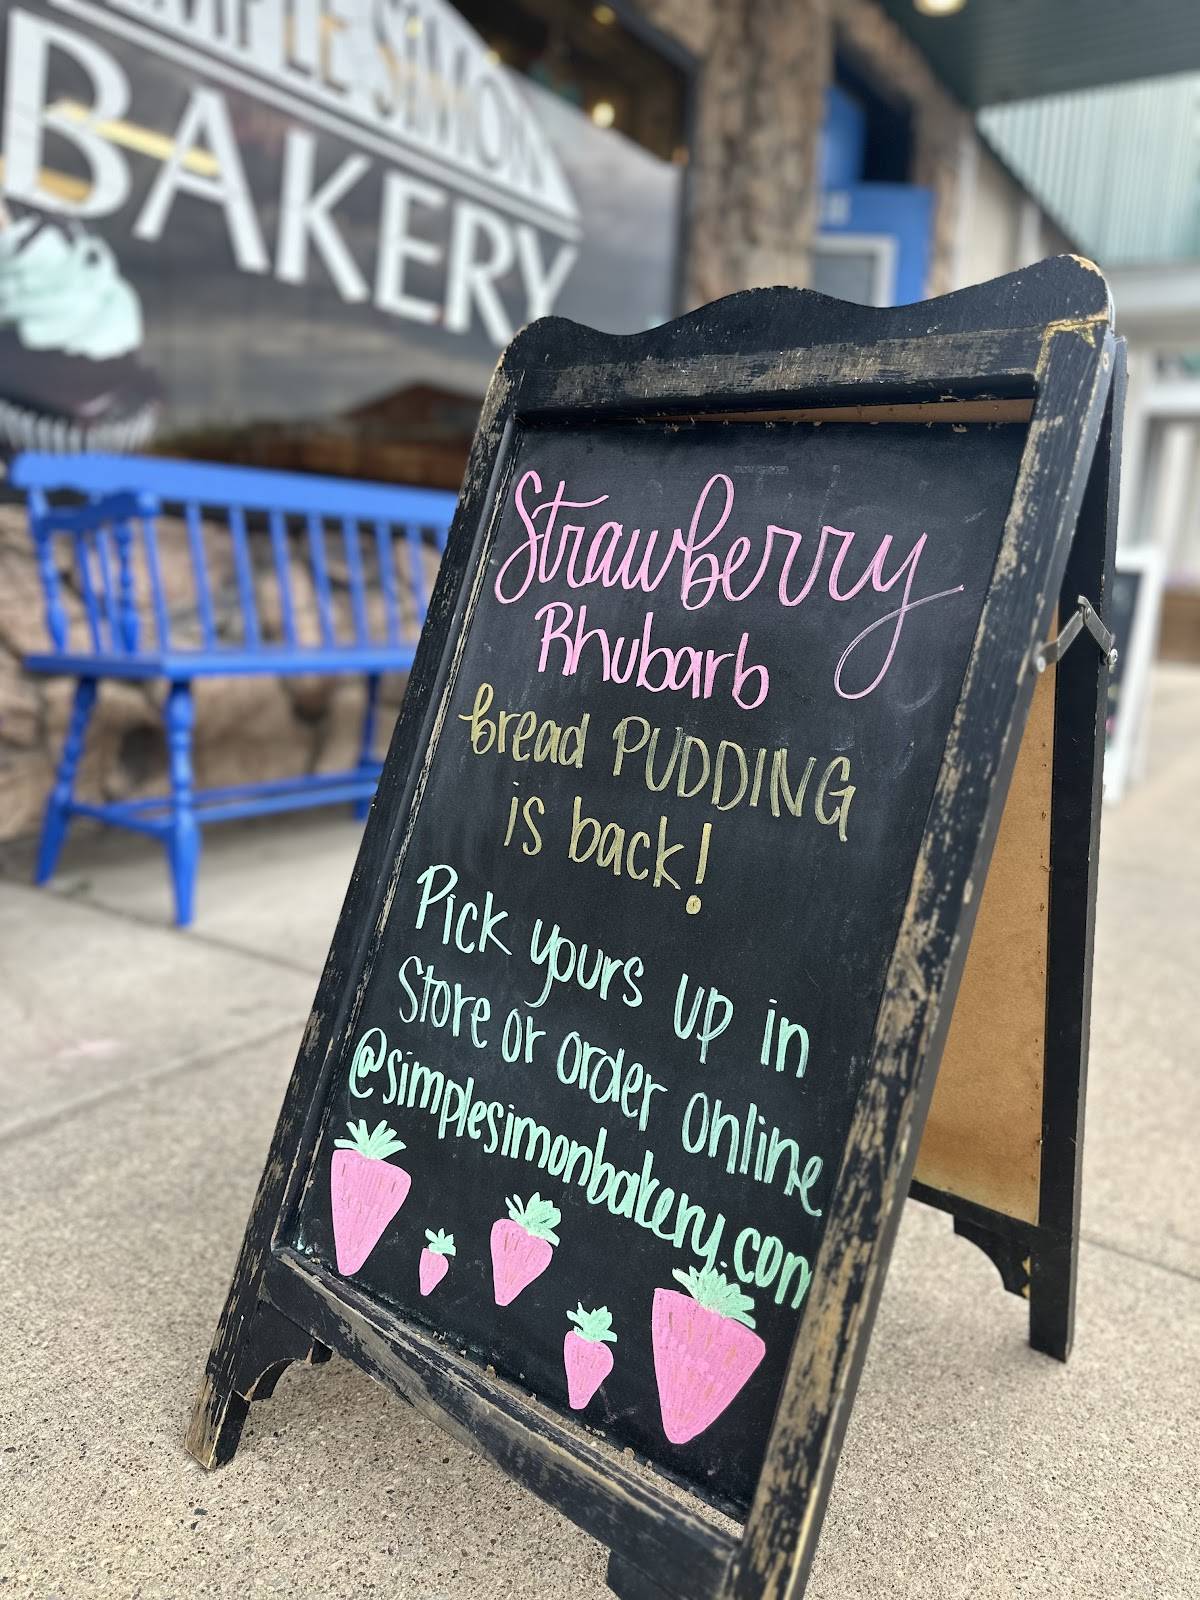 SIMON
BAKERY
Strawberry
Rhubarb
bread PUDDING
is back!
Pick yours up in
Store or order online
@simplesimonbakery.com